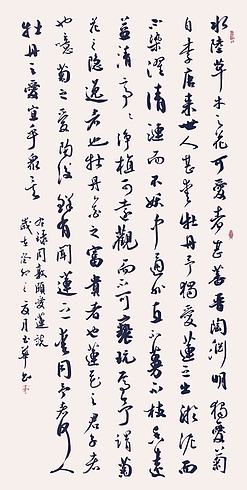 水陸草木之花可愛者甚蕃晉陶淵明獨愛菊
自李唐來世人甚愛牡丹予獨愛蓮之出淤泥而
不染濯清漣而不妖中通外直不蔓不枝香遠
益清亭亭淨植可遠觀而不可褻玩焉予謂菊
花之隱逸者也牡丹花之富貴者也蓮花之君子者
也噫菊之愛陶後鮮有聞蓮之愛同予者何人
牡丹之愛宜乎眾矣
右錄周敦頤愛蓮說
歲在癸卯之夏月